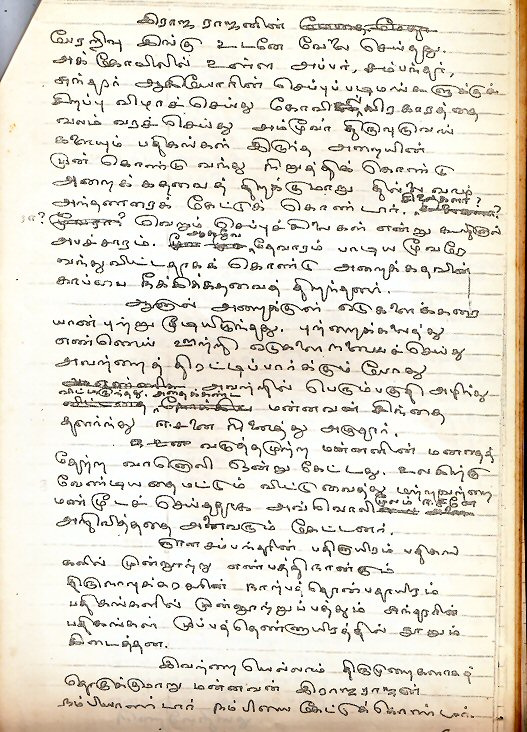 இராஜ ராஜனின்
பேரறிவு இங்கு உடனே வேலை செய்தது.
அக் கோவிலில் உள்ள அப்பர், சம்பந்தர்,
சுந்தரர் ஆகியோரின் செப்புப்படிமங்களுக்குச்
சிறப்பு விழாச் செய்து கோவில் பிரகாரத்தை
வலம் வரச் செய்து அம்மூவர் திருவுருவங்
களையும் பதிகங்கள் இருந்த அறையின்
முன் கொண்டு வந்து நிறுத்திக் கொண்டு
அறைக் கதவைத் திறக்குமாறு தில்லை வாழ்
அந்தணரைக் கேட்டுக் கொண்டார்.
வெறும் செப்புச் சிலைகள் என்று கூறினால்
அபச்சாரம். தேவாரம் பாடிய மூவரே
வந்துவிட்டதாகக் கொண்டு அறைக்கதவின்
காப்பை நீக்கிக் கதவைத் திறந்தனர்.
ஆனால் அறைக்குள் ஏடுகளைக் கறை
யான் புற்று மூடியிருந்தது. புற்றைக்கலைத்து
எண்ணெய் ஊற்றி ஏடுகளை நனையச் செய்து
அவற்றைத் திரட்டிப்பார்க்கும் போது
அவற்றில் பெரும்பகுதி அழிந்து
விட்டிருந்தது. அதைக்கண்ட
மன்னவன் சிந்தை
தளர்ந்து ஈசனை நினைத்து அழுதார்.
வருத்தமுற்ற மன்னனின் மனதைத்
தேற்ற வானொலி ஒன்று கேட்டது. உலகிற்கு
வேண்டியதை மட்டும் விட்டு வைத்து மற்றவற்றை
மண் மூடச் செய்ததாக அவ்வொலி மூலம் ஈசனே
அறிவித்ததை அனைவரும் கேட்டனர்.
ஞானசம்பந்தரின் பதினாயிரம் பதிகங்
களில் முன்னூற்று எண்பத்தி நான்கும்
திருநாவுக்கரசரின் நாற்பத்தொன்பதாயிரம்
பதிகங்களில் முன்னூற்றுப்பத்தும் சுந்தரரின்
பதிகங்கள் முப்பத்தெண்ணாயிரத்தில் நூறும்
கிடைத்தன.
இவற்றையெல்லாம் திருமுறைகளாகத்
தொகுக்குமாறு மன்னவன் இராஜராஜன்
நம்பியாண்டார் நம்பியை கேட்டுக் கொண்டார்.